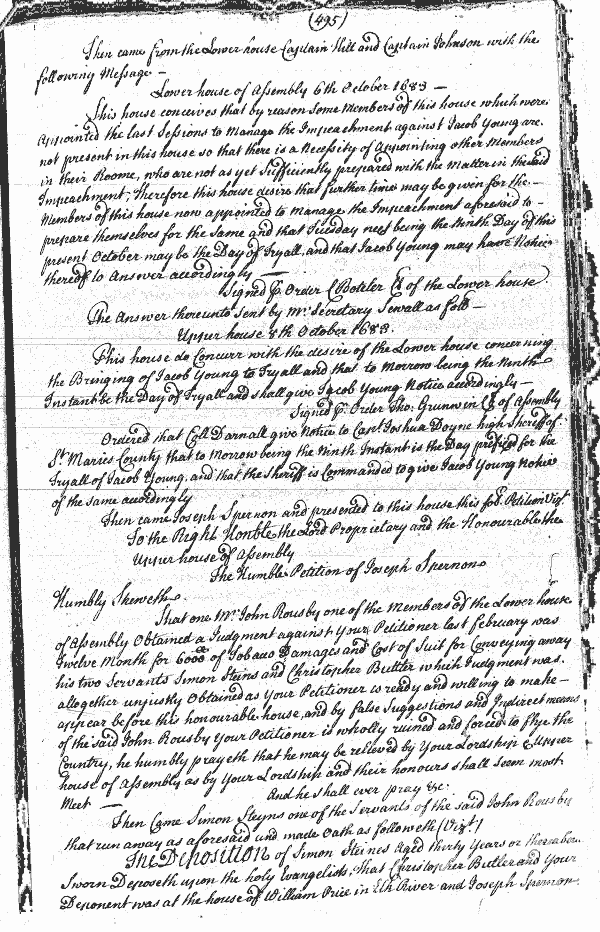 (495)
Then came from the Lower house Captain Hill and Captain Johnson with the
following Message —
Lower house of Assembly 6th October 1683 —
This house conceives that by reason some Members of this house which were
Appointed the last Sessions to Manage the Impeachment against Jacob Young are
not present in this house so that there is a Necessity of Appointing other Members
in their Roome, who are not as yet Sufficiently prepared with the Matter in the said
Impeachment; Therefore this house desire that further time may be given for the —
Members of this house now appointed to Manage the Impeachment aforesaid to —
prepare themselves for the Same and that Tuesday next being the Ninth Day of this
present October may be the Day of Tryall, and that Jacob Young may have Notice
thereof to Answer accordingly —
Signed p. Order C Boteler Cl. of the Lower house
The Answer thereunto Sent by Mr. Secretary Sewall as foll —
Upper house 8th October 1683.
This house do Concurr with the desire of the Lower house concerning
the Bringing of Jacob Young to Tryall and that to Morrow being the Ninth
Instant be the Day of Tryall and shall give Jacob Young Notice accordingly —
Signed p. Order Tho: Grunwin Cl. of Assembly
Ordered that Coll Darnall give Notice to Capt. Joshua Doyne high Sheriff of
St. Maries County that to Morrow being the Ninth Instant is the Day prefixed for the
Tryall of Jacob Young, and that the Sheriff is Commanded to give Jacob Young Notice
of the same accordingly
Then came Joseph Spernon and presented to this house this fol. Petition Vizt.
To the Right Honble. the Lord Proprietary and the Honourable the
Upper house of Assembly
The Humble Petition of Joseph Spernon
Humbly Sheweth.
That one Mr. John Rousby one of the Members of the Lower house
of Assembly Obtained a Judgment against Your Petitioner last february was
twelve Month for 6000 of Tobacco Damages and Cost of Suit for Conveying away
his two Servants Simon Steins and Christopher Buttler which Judgment was
altogether unjustly Obtained as Your Petitioner is ready and willing to make —
appear before this honourable house, and by false Suggestions and Indirect means
of the said John Rousby Your Petitioner is wholly ruined and forced to flye the
Country, he humbly prayeth that he may be releived by Your Lordship & Upper
house of Assembly as by Your Lordship and their honours shall Seem most
Meet —
And he shall ever pray &c.
Then Came Simon Steyns one of the Servants of the said John Rousby
that run away as aforesaid and made Oath as followeth (Vizt.)
The Deposition of Simon Steines Aged thirty Years or thereabts.
Sworn Deposeth upon the holy Evangelists, That Christopher Butler and Your
Deponent was at the house of William Price in Elk River and Joseph Spernon